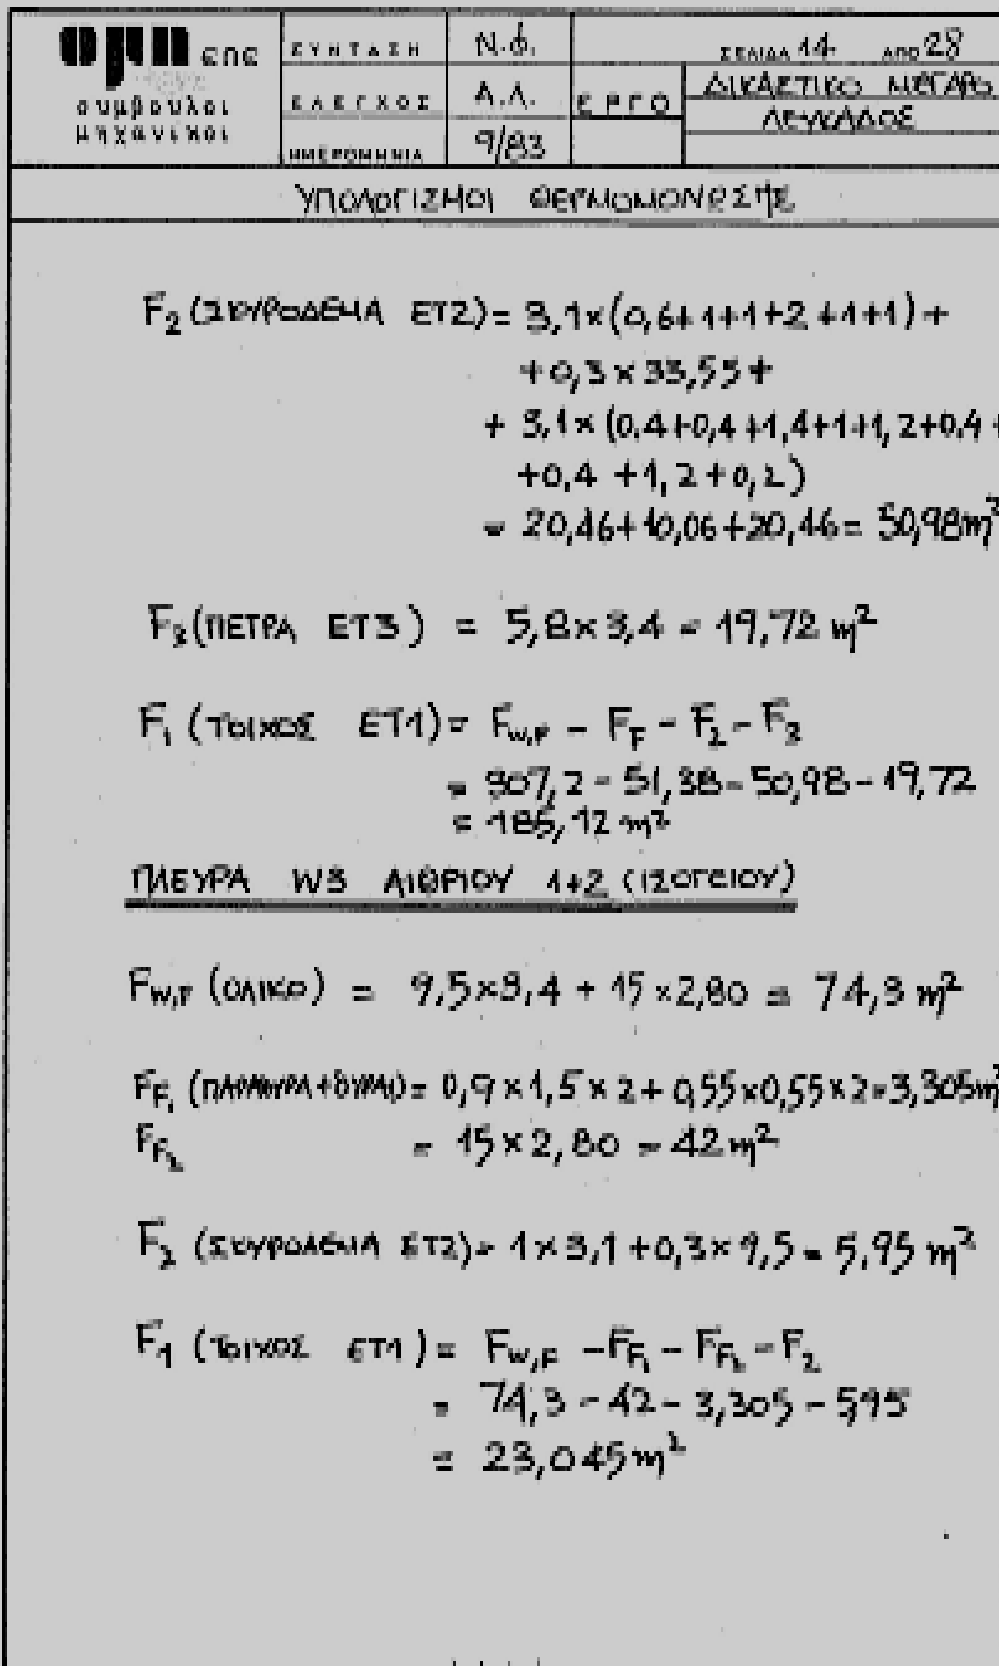 επε
σύμβουλοι
μηχανικοί
ΣΥΝΤΑΞΗ Ν.Φ.
ΕΛΕΓΧΟΣ Α.Λ.
ΗΜΕΡΟΜΗΝΙΑ 9/83
ΕΡΓΟ
ΣΕΛΙΔΑ 14 ΑΠΟ 28
ΔΙΚΑΣΤΙΚΟ ΜΕΓΑΡΟ
ΛΕΥΚΑΔΟΣ
ΥΠΟΛΟΓΙΣΜΟΙ ΘΕΡΜΟΜΟΝΩΣΗΣ
F₂ (ΣΚΥΡΟΔΕΜΑ ΕΤ2) = 3,1×(0,6+1+1+2+1+1)+
+0,3×33,55+
+ 3,1×(0,4+0,4+1,4+1+1,2+0,4+
+0,4+1,2+0,2)
= 20,46+10,06+20,46 = 50,98m²
F₃ (ΠΕΤΡΑ ΕΤ3) = 5,8×3,4 = 19,72 m²
F₁ (ΤΟΙΧΟΣ ΕΤ1) = F_W,F - F_F - F₂ - F₃
= 307,2 - 51,38 - 50,98 - 19,72
= 185,12 m²
ΠΛΕΥΡΑ W3 ΑΙΘΡΙΟΥ 1+2 (ΙΣΟΓΕΙΟΥ)
F_W,F (ΟΛΙΚΟ) = 9,5×3,4 + 15×2,80 = 74,3 m²
F_F₁ (ΠΑΡΑΘΥΡΑ+ΘΥΡΑΙ) = 0,9×1,5×2+0,55×0,55×2=3,305m²
F_F₂ = 15×2,80 = 42 m²
F₂ (ΣΚΥΡΟΔΕΜΑ ΕΤ2) = 1×3,1+0,3×9,5 = 5,95 m²
F₁ (ΤΟΙΧΟΣ ΕΤ1) = F_W,F - F_F₁ - F_F₂ - F₂
= 74,3 - 42 - 3,305 - 5,95
= 23,045 m²